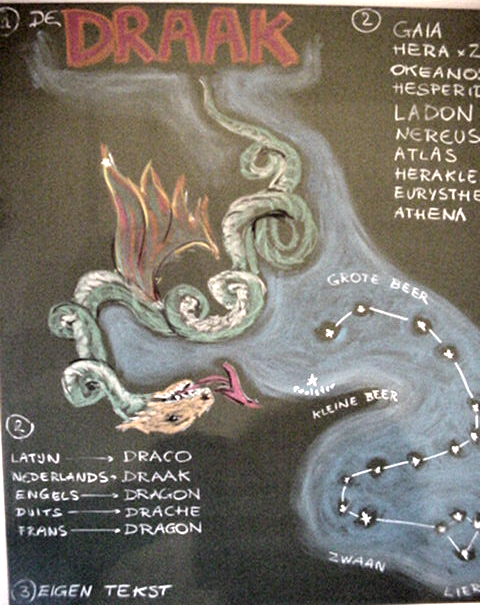 1 DE DRAAK
2
GAIA
HERA x Z
OKEANOS
HESPERID
LADON
NEREUS
ATLAS
HERAKLE
EURYSTHE
ATHENA
GROTE BEER
poolster
KLEINE BEER
2
LATIJN → DRACO
NEDERLANDS → DRAAK
ENGELS → DRAGON
DUITS → DRACHE
FRANS → DRAGON
ZWAAN
LIER
3 EIGEN TEKST